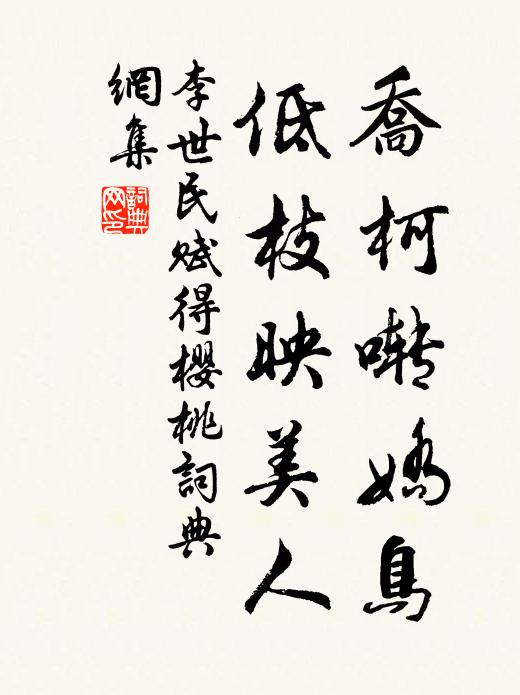 喬柯囀嬌鳥
低枝映美人
李世民賦得櫻桃詞典
網集
詞典
網印